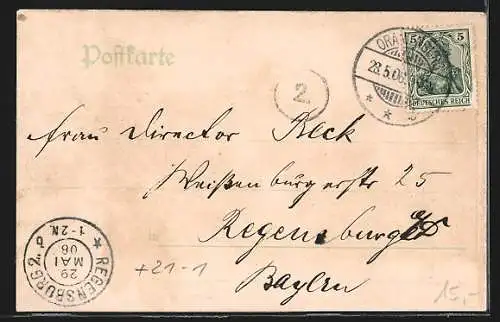 Postkarte
ORANIENBURG
28.5.06
5 5
DEUTSCHES REICH
2.
Frau Director Reck
Weißenburgerstr 25
Regensburg
Bayern
REGENSBURG 2.
29
MAI
06
1-2N.
b
+21-1
15,-